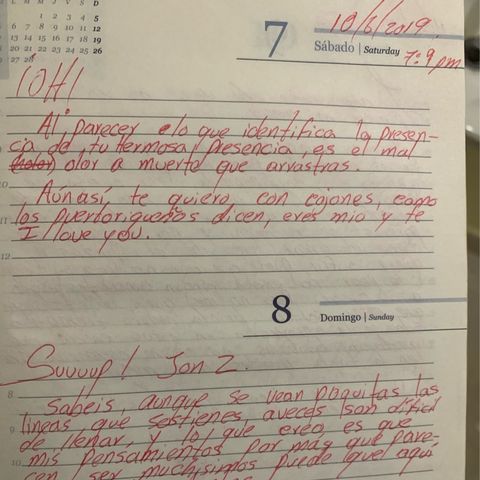 L M M J V S D
1 2 3 4 5
6 7 8 9 10 11 12
13 14 15 16 17 18 19
20 21 22 23 24 25 26
27 28
7
Sábado | Saturday
10/6/2019.
7:9 pm
¡OH!
Al parecer lo que identifica la presen-
cia de, tu hermosa presencia, es el mal
(holor) olor a muerto que arrastras.
Aúnasí, te quiero, con cojones, como
los puertorigueños dicen, eres mio y te
I love you.
8
Domingo | Sunday
Suuuup! Jon Z.
Sabeis, aunque se vean poquitas las
lineas, que sostienes, aveces son dificil
de llenar, y lo que creo es que
mis pensamientos por más que pare-
cen ser muchisimos puede que aqui